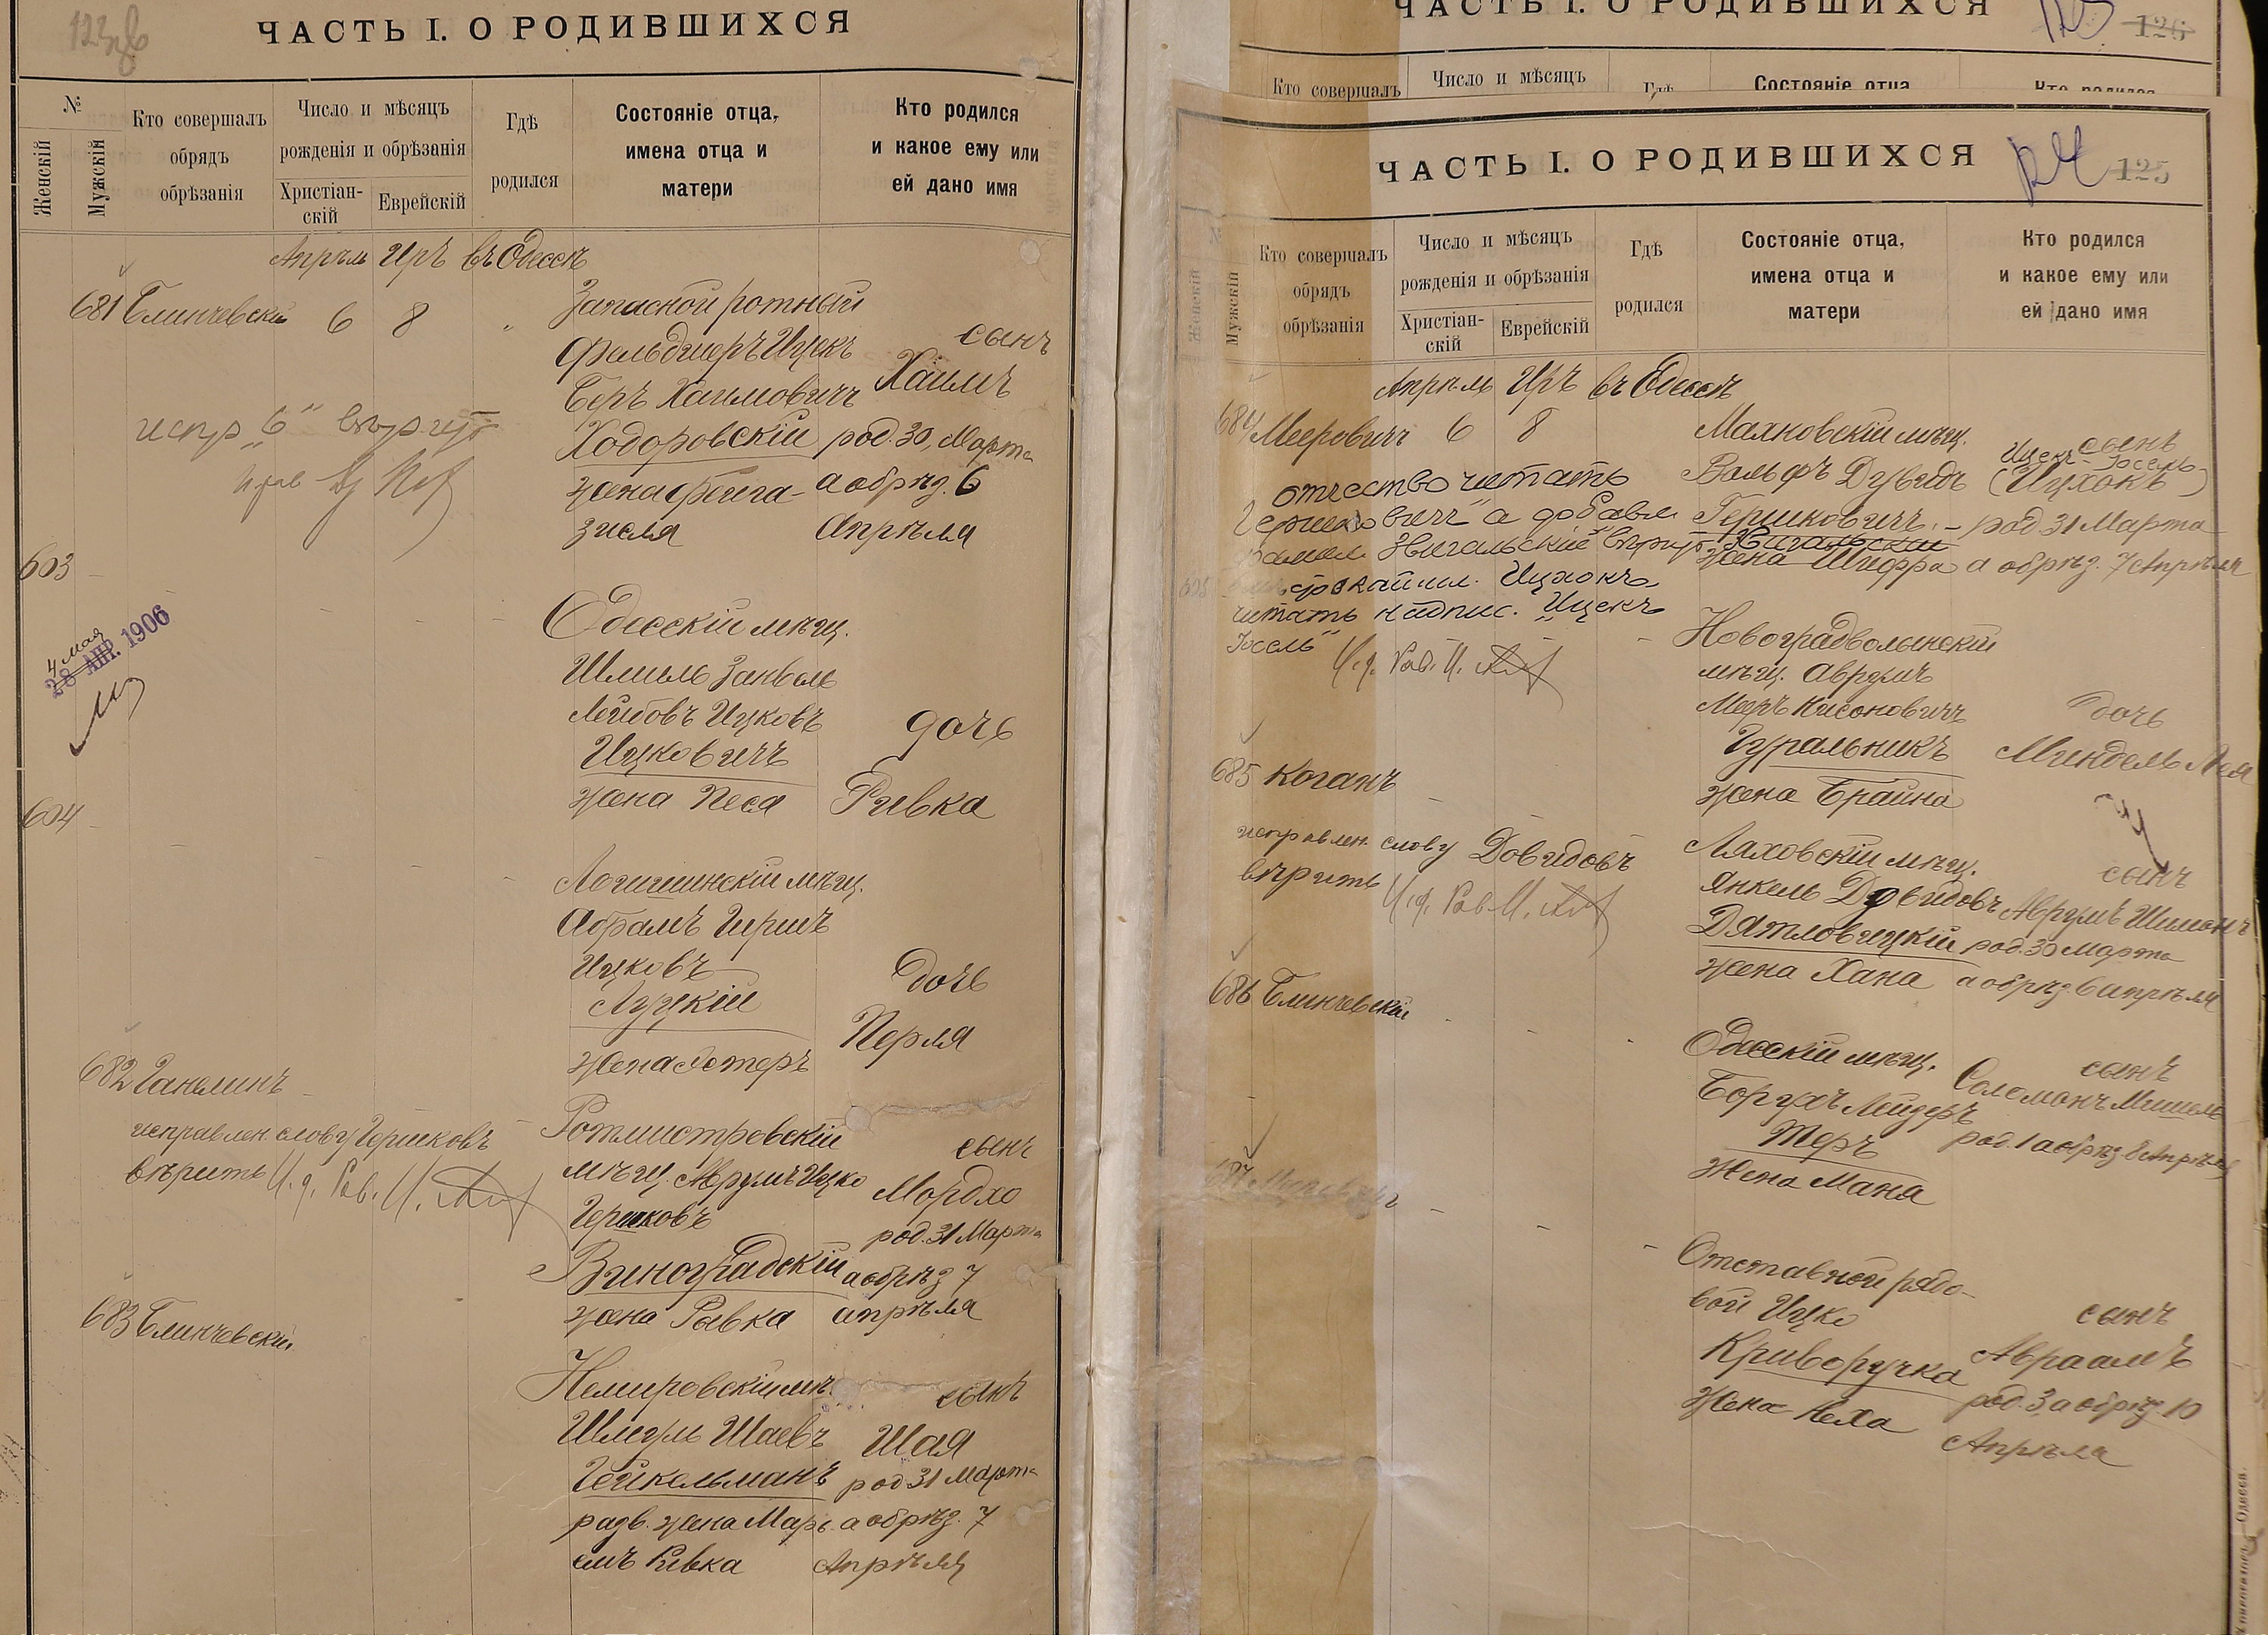 ЧАСТЬ I. О РОДИВШИХСЯ
№
Женскій
Мужскій
Кто совершалъ
обрядъ
обрѣзанія
Число и мѣсяцъ
рожденія и обрѣзанія
Христіан-
скій
Еврейскій
Гдѣ
родился
Состояніе отца,
имена отца и
матери
Кто родился
и какое ему или
ей дано имя
Апрѣль Иръ въ Одессѣ
681 Блинчевскій 6 8 "
Запасной ротный
фельдшеръ Ицекъ
Беръ Хаимовичъ
Ходоровскій
жена Фейга-
Зисля
сынъ
Хаимъ
род. 30, Марта
а обрѣз. 6
Апрѣля
испр. "6" вѣрить
603
4 мая
28 АПР. 1906
Одесскій мѣщ.
Шмиль Занвель
Лейбовъ Ицковъ
Ицковичъ
жена Песя
дочь
Ривка
604
Логишинскій мѣщ.
Абрамъ Гиршъ
Ицковъ
Луцкій
жена Эстеръ
дочь
Перля
682 Ганелинъ
исправлен. слову Гершковъ
вѣрить И. д. Рав. И.
Ротмистровскій
мѣщ. Аврумъ Ицко
Гершковъ
Виноградскій
жена Рывка
сынъ
Мордхо
род. 31 Марта
а обрѣз 7
апрѣля
683 Блинчевскій
Немировскій мѣ.
Шмуль Шаевъ
Гейкельманъ
разв. жена Марь-
емъ Ривка
сынъ
Шая
род 31 Марта
а обрѣз. 7
Апрѣля
ЧАСТЬ I. О РОДИВШИХСЯ
126
Кто совершалъ
Число и мѣсяцъ
Гдѣ
Состояніе отца
Кто родился
ЧАСТЬ I. О РОДИВШИХСЯ
124 125
Женскій
Мужскій
Кто совершалъ
обрядъ
обрѣзанія
Число и мѣсяцъ
рожденія и обрѣзанія
Христіан-
скій
Еврейскій
Гдѣ
родился
Состояніе отца,
имена отца и
матери
Кто родился
и какое ему или
ей дано имя
Апрѣль Иръ въ Одессѣ
684 Мееровичъ 6 8
Махновскій мѣщ.
Вольфъ Дувидъ
Гершковичъ.
Звигальскій
жена Шифра
сынъ
Ицекъ Іосель
(Ицхокъ)
род. 31 Марта
а обрѣз. 7 Апрѣля
отчество читать
Гершковичъ" а добавл.
фамил. Звигальскій" вѣрить
Ицхокъ
читать надпис. "Ицекъ
Іосель" И. д. Рав. И.
605
Новоградволынскій
мѣщ. Аврумъ
Меръ Нисоновичъ
Гуральникъ
жена Брайна
дочь
Миндель Лея
685 Коганъ
исправлен. слову Довидовъ
вѣрить И. д. Рав. И.
Ляховскій мѣщ.
Янкель Довидовъ
Дятловицкій
жена Хана
сынъ
Аврумъ Шимонъ
род. 30 марта
а обрѣз. 6 апрѣля
686 Блинчевскій
Одесскій мѣщ.
Борухъ Лейзеръ
Теръ
Жена Маня
сынъ
Соломонъ Мишель
род. 1 а обрѣз. 8 Апрѣля
687 Мееровичъ
Отставной рядо-
вой Ицко
Криворучка
жена Неха
сынъ
Авраамъ
род. 3, а обрѣз. 10
Апрѣля